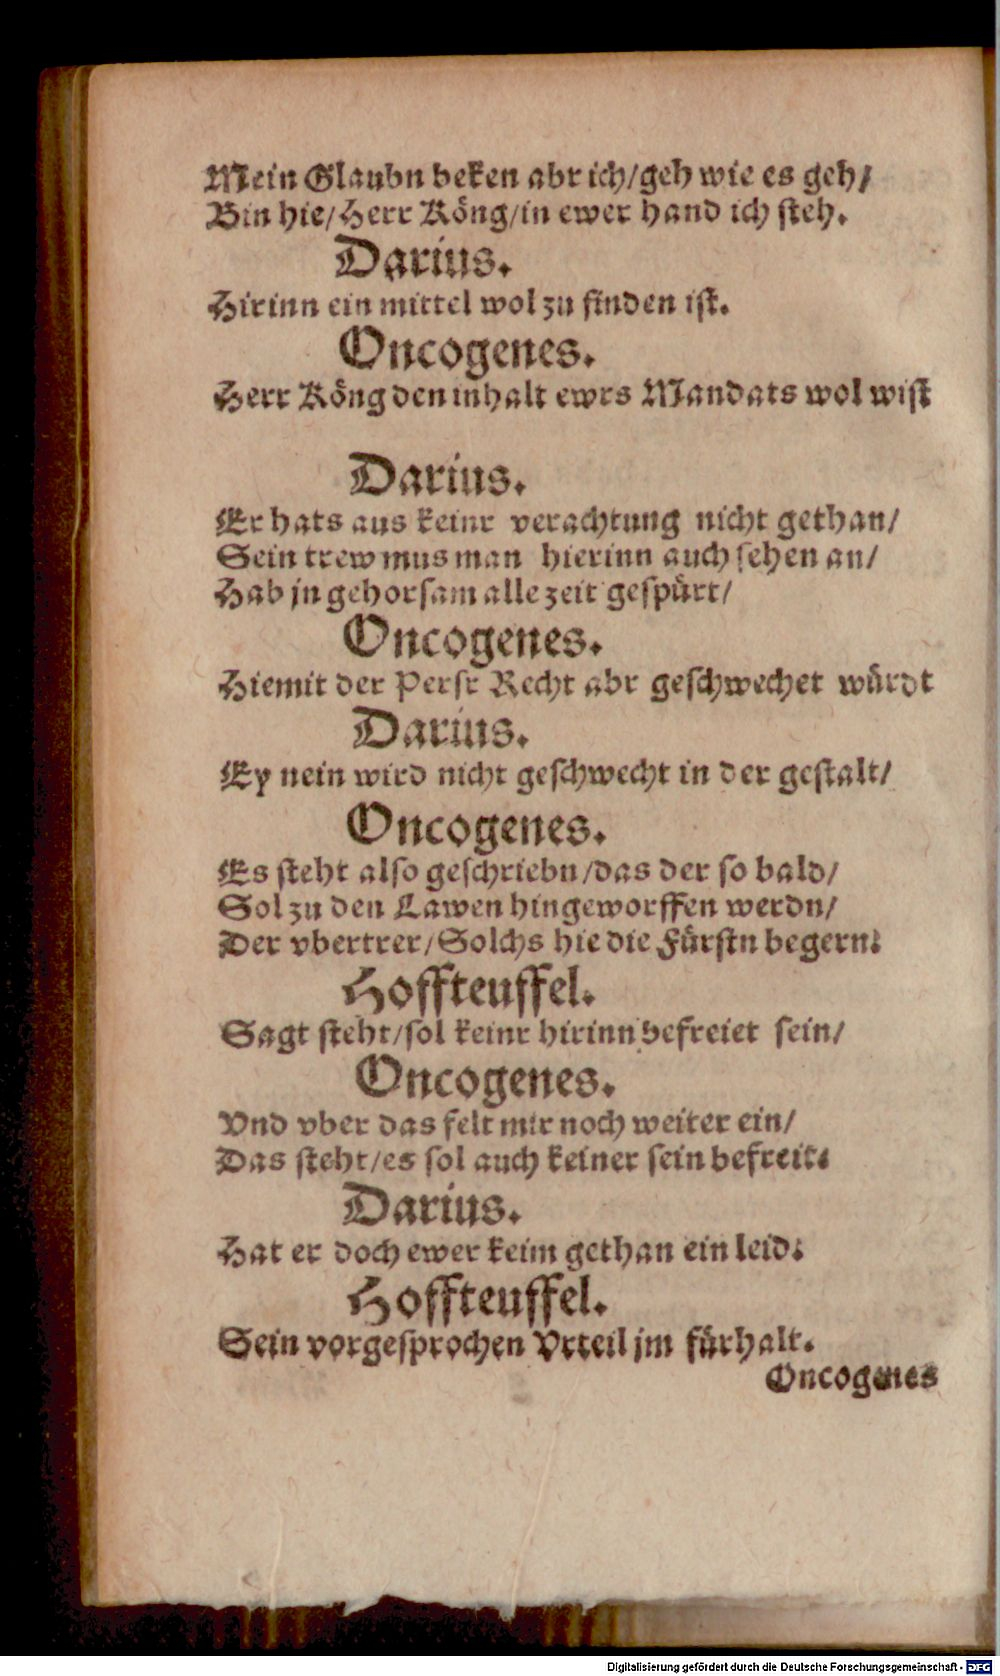 Mein Glaubn beken abr ich/geh wie es geh/
Bin hie/Herr Köng/in ewer hand ich steh.
Darius.
Hirinn ein mittel wol zu finden ist.
Oncogenes.
Herr Köng den inhalt ewrs Mandats wol wist
Darius.
Er hats aus keinr verachtung nicht gethan/
Sein trew mus man hierinn auch sehen an/
Hab jn gehorsam alle zeit gespürt/
Oncogenes.
Hiemit der Persr Recht abr geschwechet würdt
Darius.
Ey nein wird nicht geschwecht in der gestalt/
Oncogenes.
Es steht also geschriebn/das der so bald/
Sol zu den Lawen hingeworffen werdn/
Der vbertrer/Solchs hie die Fürstn begern:
Hoffteuffel.
Sagt steht/sol keinr hirinn befreiet sein/
Oncogenes.
Vnd vber das felt mir noch weiter ein/
Das steht/es sol auch keiner sein befreit:
Darius.
Hat er doch ewer keim gethan ein leid:
Hoffteuffel.
Sein vorgesprochen Vrteil jm fürhalt.
Oncogenes
Digitalisierung gefördert durch die Deutsche Forschungsgemeinschaft - DFG